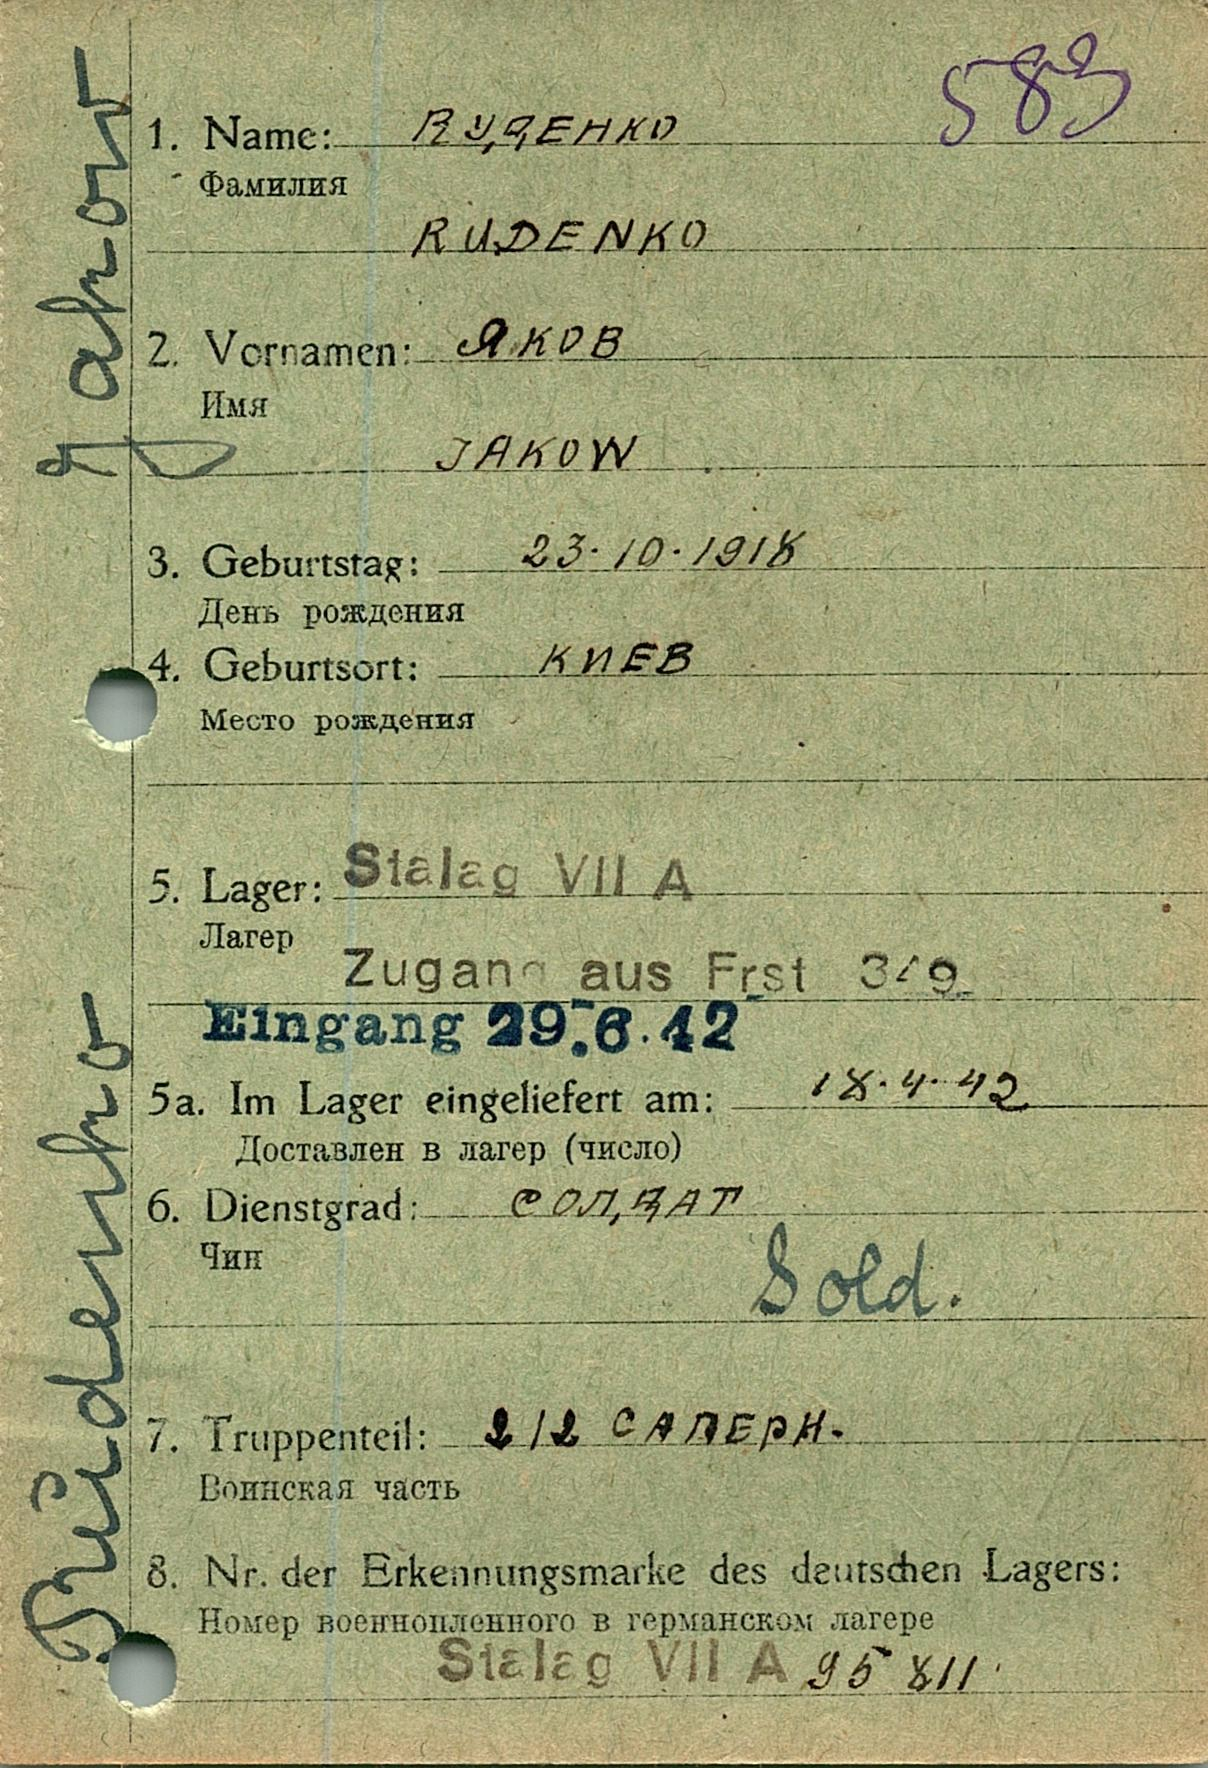 583
1. Name: RУДЕНКО
Фамилия
RUDENKO
2. Vornamen: ЯКОВ
Имя
JAKOW
3. Geburtstag: 23·10·1918
День рождения
4. Geburtsort: КИЕВ
Место рождения
5. Lager: Stalag VII A
Лагер
Zugang aus Frst
Eingang 29.6.42
5a. Im Lager eingeliefert am: 18·4·42
Доставлен в лагер (число)
6. Dienstgrad: СОЛДАТ
Чин
Sold.
7. Truppenteil: 212 САПЕРН.
Воинская часть
8. Nr. der Erkennungsmarke des deutschen Lagers:
Номер военнопленного в германском лагере
Stalag VII A 95 811
Rudenko Jakow